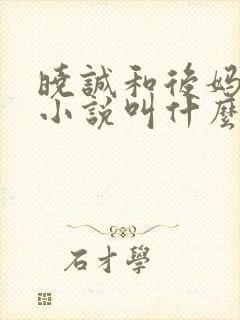 曉誠和後妈
小說叫什麼
石才學